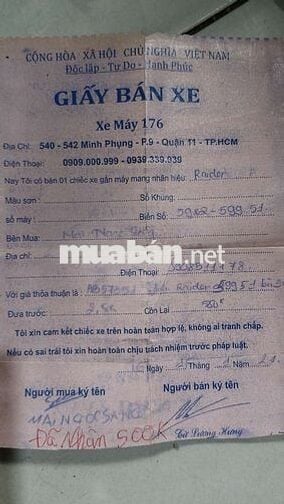 CỘNG HÒA XÃ HỘI CHỦ NGHĨA VIỆT NAM
Độc lập - Tự Do - Hạnh Phúc
GIẤY BÁN XE
Xe Máy 176
Địa Chỉ: 540 - 542 Minh Phụng - P.9 - Quận 11 - TP.HCM
Điện Thoại: 0909.000.999 - 0939.339.939
Nay Tôi có bán 01 chiếc xe gắn máy mang nhãn hiệu: Raider
Màu sơn: Số Khung:
số máy: Biển Số: 599.51
Bên Mua: Mai Ngọc
muabán.net
Địa chỉ:
Điện Thoại:
Với giá thỏa thuận là: Raider
Đưa trước: Còn Lại
Tôi xin cam kết chiếc xe trên hoàn toàn hợp lệ, không ai tranh chấp.
Nếu có sai trái tôi xin hoàn toàn chịu trách nhiệm trước pháp luật.
Ngày Tháng
Người mua ký tên Người bán ký tên
MAI NGỌC
Từ Lương Hùng
Đã Nhận 500K